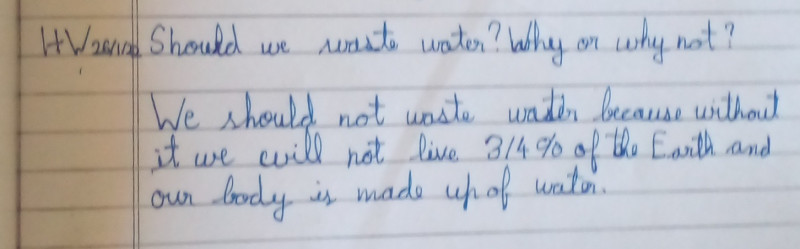 HW Should we waste water? Why or why not?
We should not waste water because without
it we will not live. 3/4% of the Earth and
our body is made up of water.